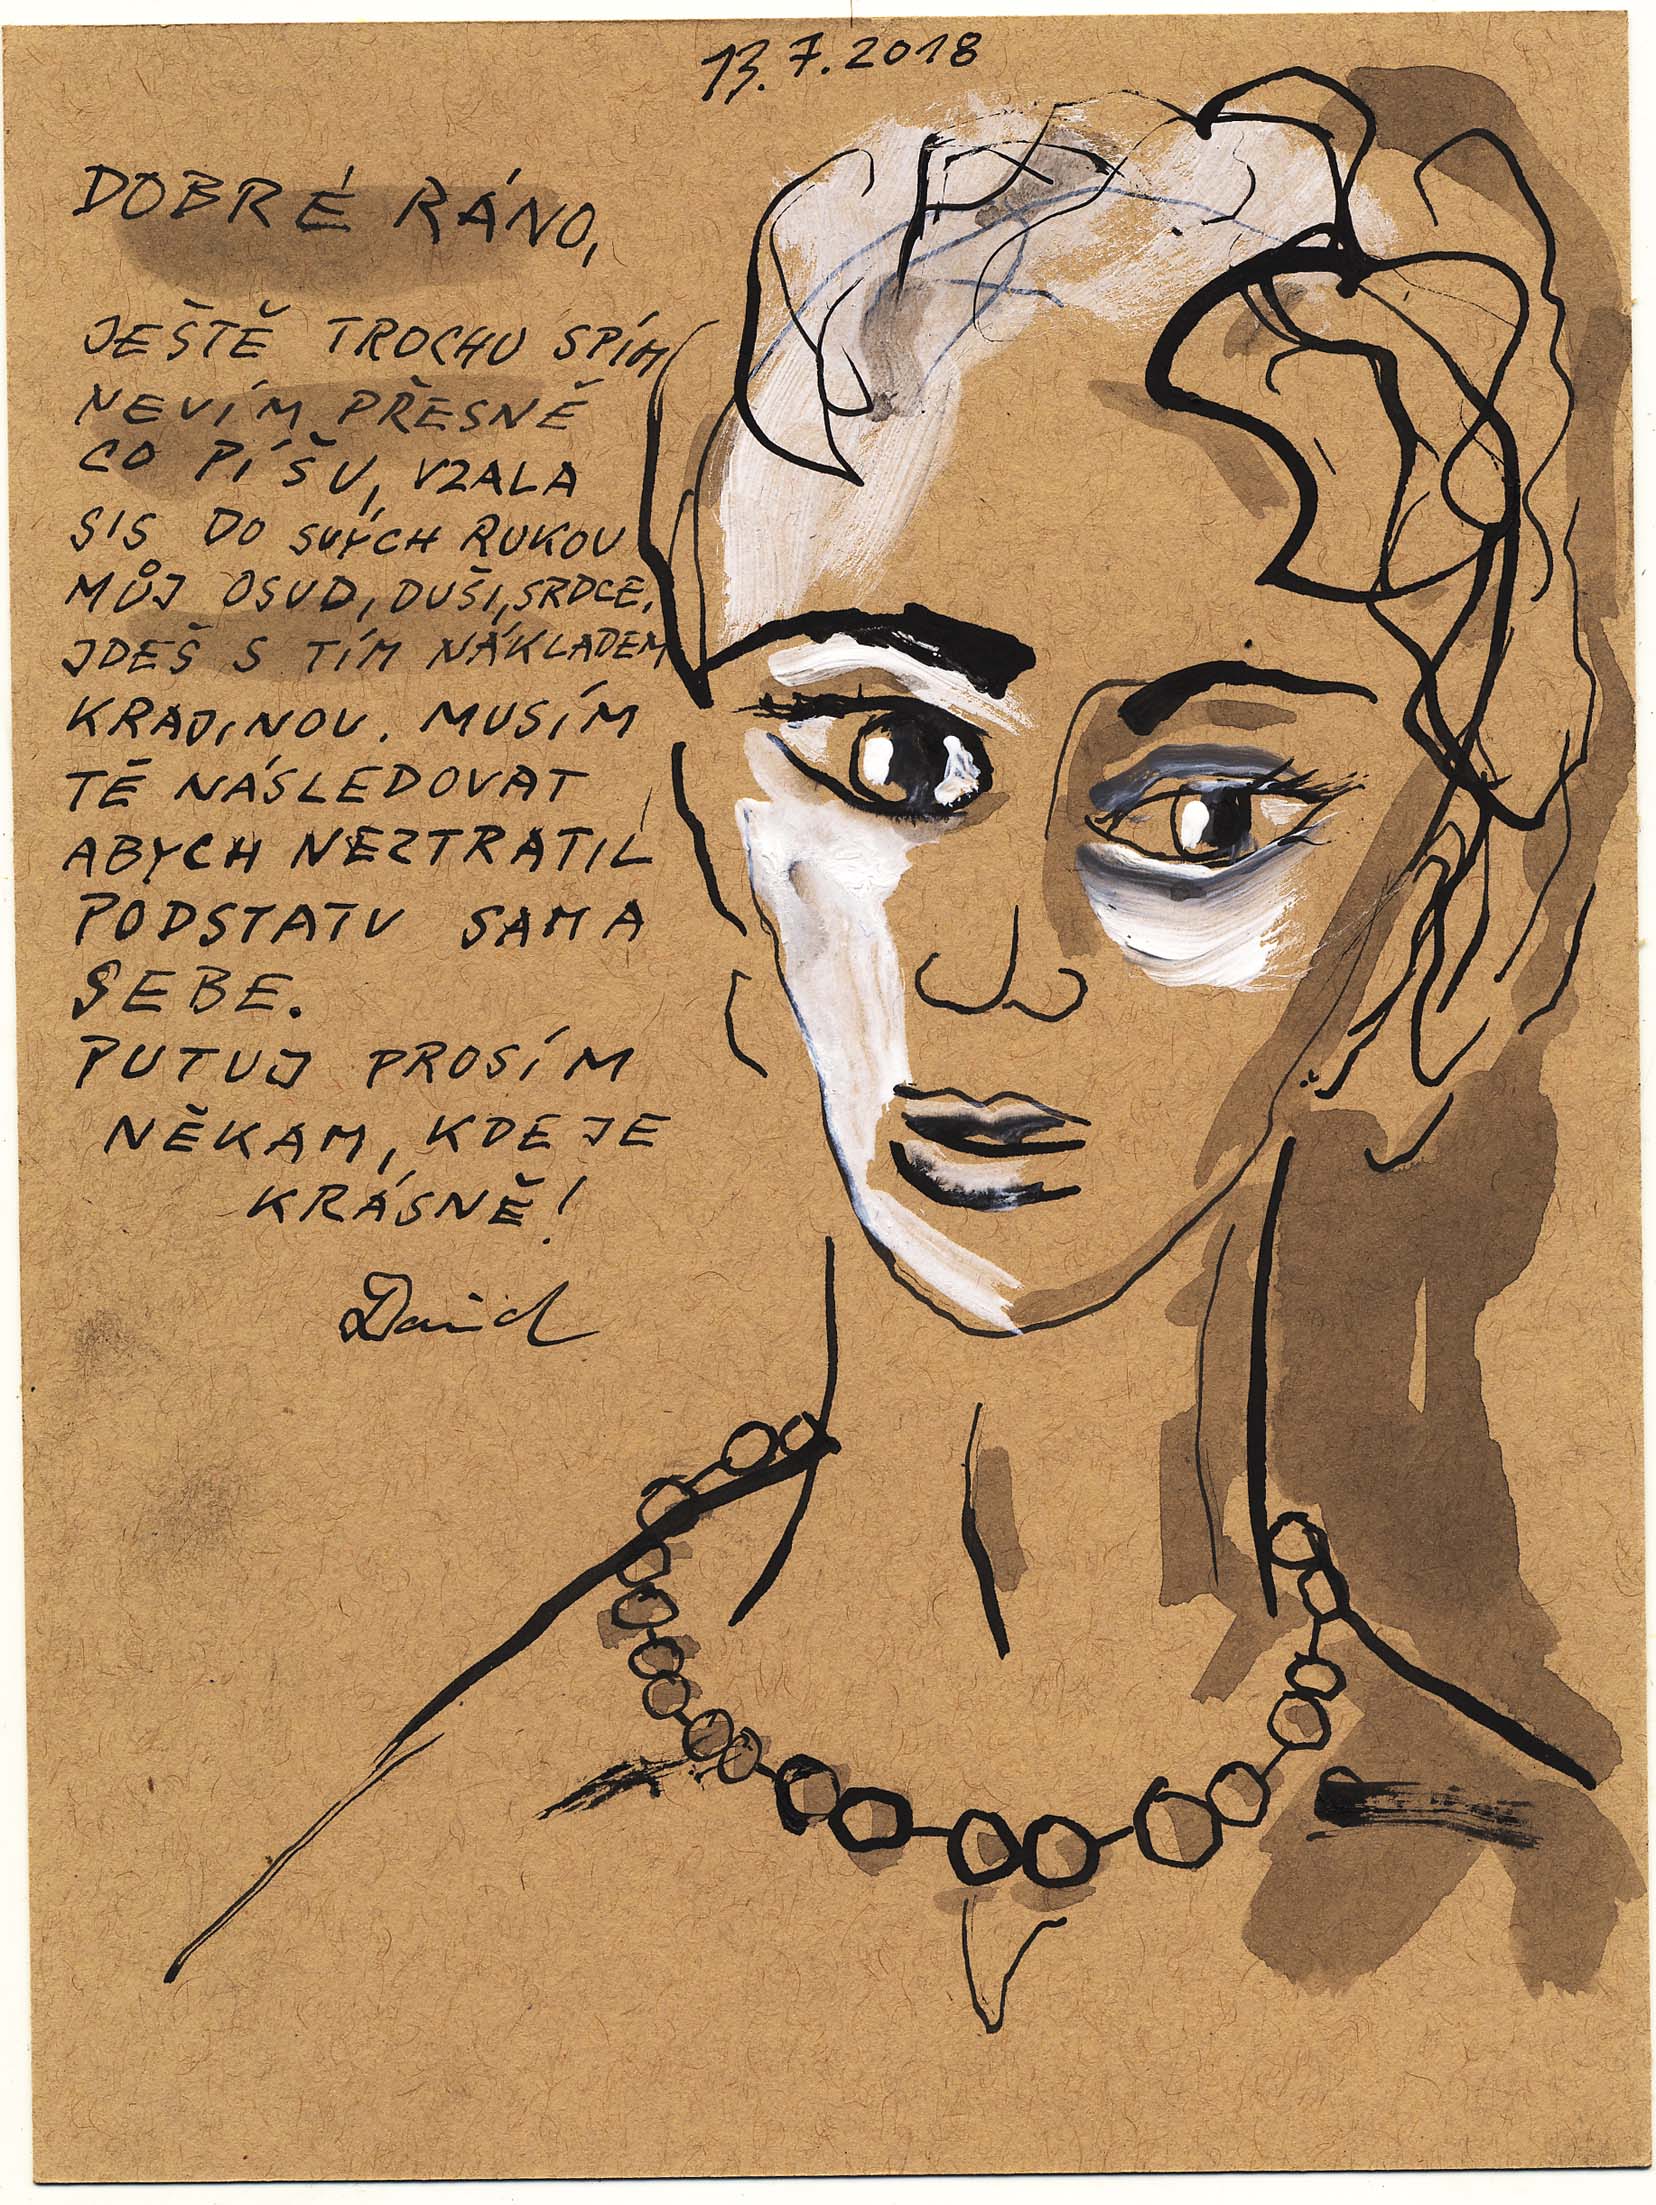 13.7.2018
DOBRÉ RÁNO,
JEŠTĚ TROCHU SPÍM
NEVÍM PŘESNĚ
CO PÍŠU, VZALA
SIS DO SVÝCH RUKOU
MŮJ OSUD, DUŠI, SRDCE,
JDEŠ S TÍM NÁKLADEM
KRAJINOU. MUSÍM
TĚ NÁSLEDOVAT
ABYCH NEZTRATIL
PODSTATU SAMA
SEBE.
PUTUJ PROSÍM
NĚKAM, KDE JE
KRÁSNĚ!
David